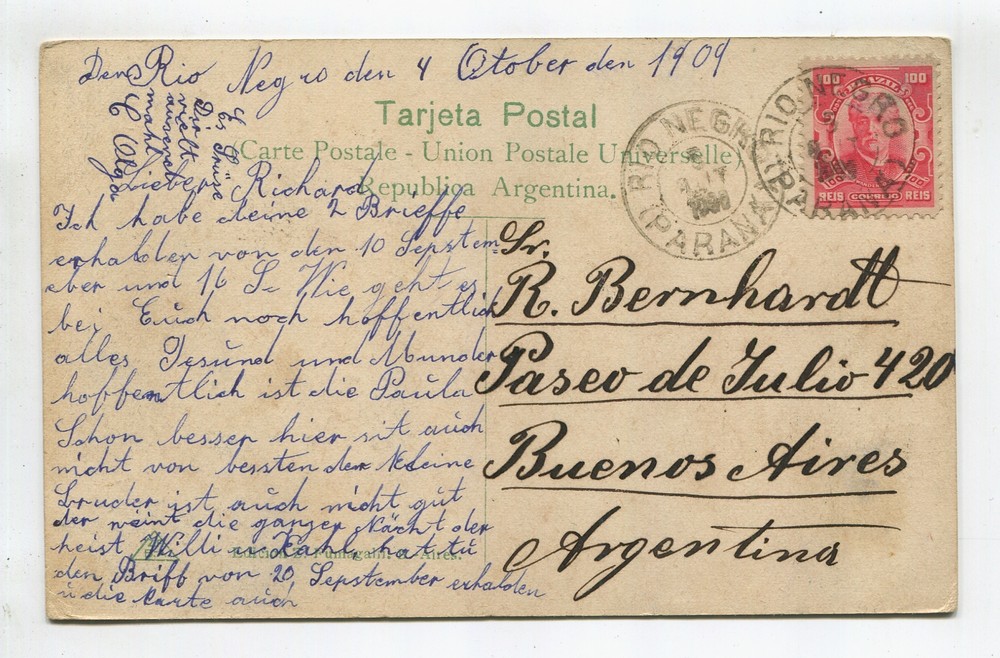 Rio Negro den 4 Otober den 1909
Es Grüse
Dir
vielle
ausend
mahl
E Olga
Tarjeta Postal
(Carte Postale - Union Postale Universelle)
Republica Argentina.
Lieber Richard
Ich habe deine 2 Brieffe
erhalden von den 10 Septem-
eber und 16 S. Wie geht es
bei Euch noch hoffentlich
alles Gesund und Munder
hoffentlich ist die Paula
Schon besser hier sit auch
nicht von bessten der Kleine
Bruder ist auch nicht gut
der weint die ganzer Nacht der
heist Willi hat tu
den Briff von 20 September erhalden
u die Karte auch
Fumagalli B. Aires.
RIO NEGRO
(PARANA)
RIO NEGRO
(PARANA)
100 BRAZIL 100
REIS CORREIO REIS
Sr.
R. Bernhardt
Paseo de Julio 420
Buenos Aires
Argentina